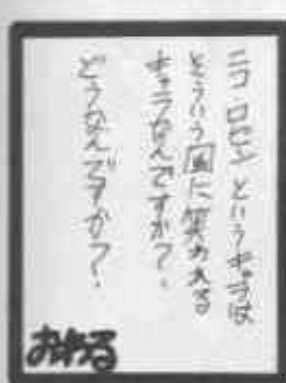 ニコ・ロビンというキャラは
どういう風に笑われる
キャラなんですか？
どうなんですか？
おわる